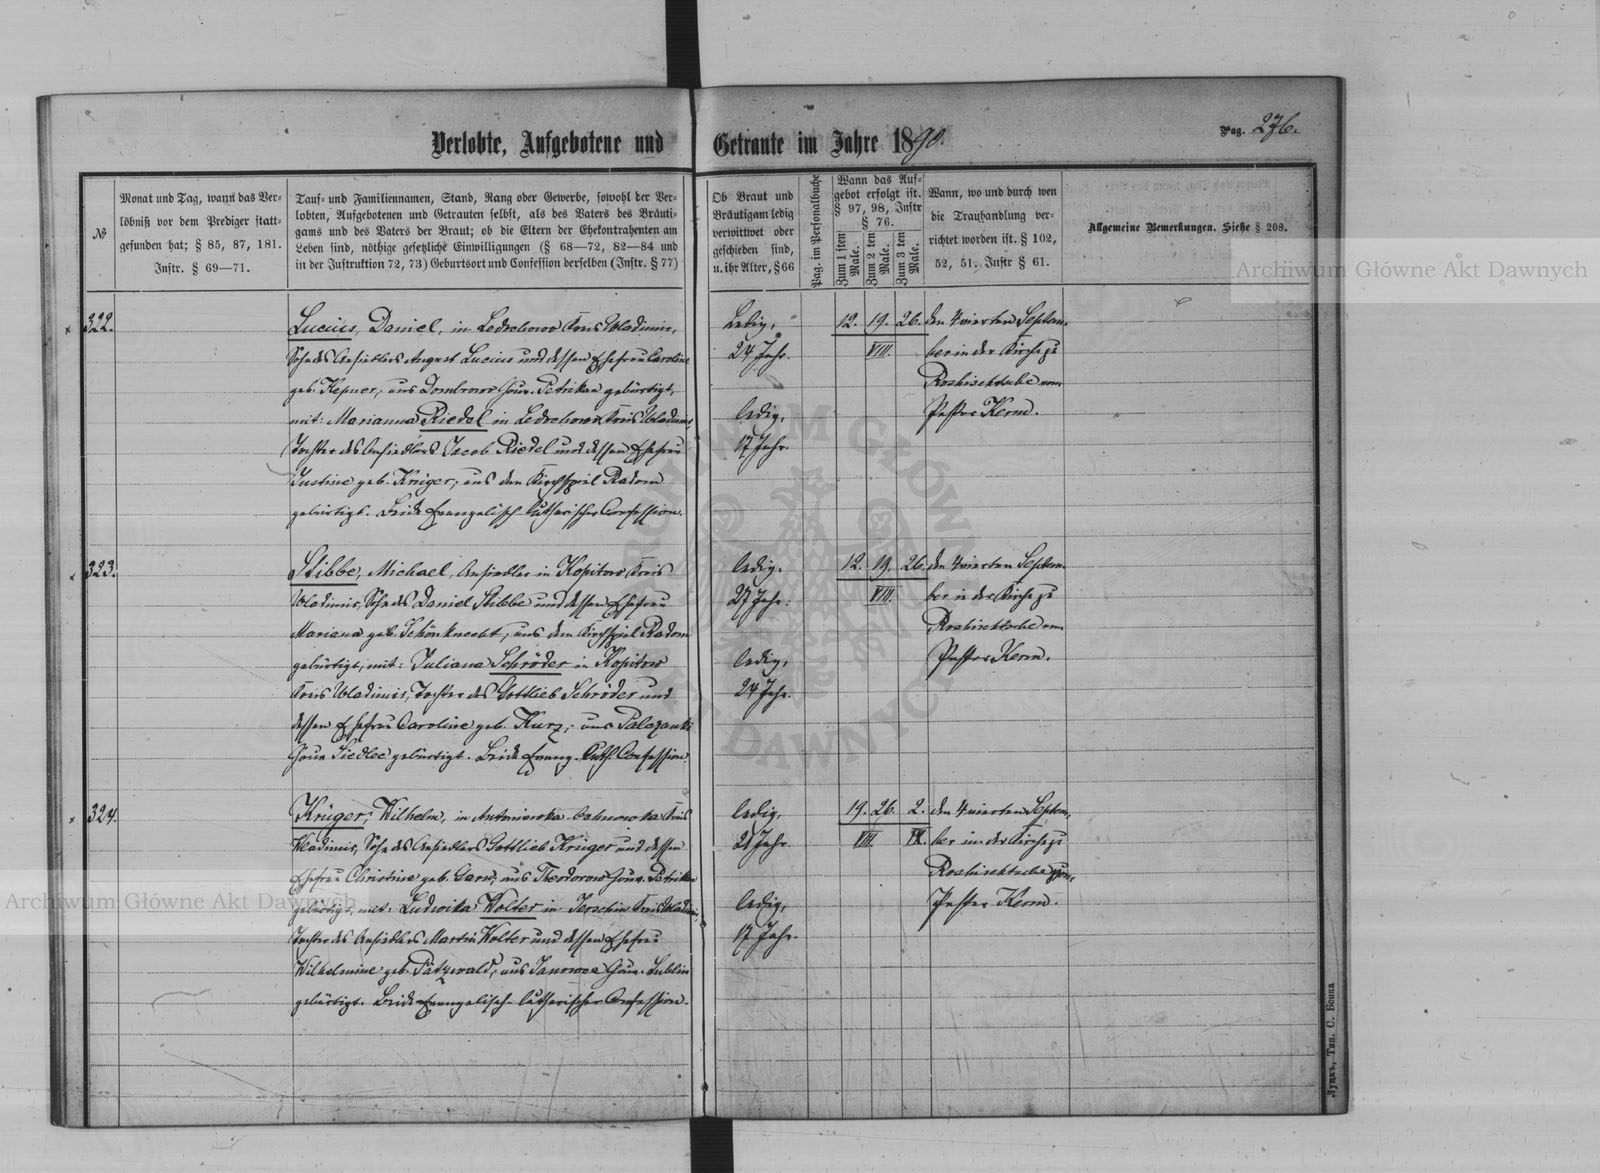 Verlobte, Aufgebotene und Getraute im Jahre 1890.
Pag. 276.
№
Monat und Tag, wann das Ver-
löbniß vor dem Prediger statt-
gefunden hat; § 85, 87, 181.
Instr. § 69—71.
Tauf- und Familiennamen, Stand, Rang oder Gewerbe, sowohl der Ver-
lobten, Aufgebotenen und Getrauten selbst, als des Vaters des Bräuti-
gams und des Vaters der Braut; ob die Eltern der Ehekontrahenten am
Leben sind, nöthige gesetzliche Einwilligungen (§ 68—72, 82—84 und
in der Justruktion 72, 73) Geburtsort und Confession derselben (Instr. § 77)
Ob Braut und
Bräutigam ledig
verwittwet oder
geschieden sind,
u. ihr Alter, § 66
Pag. im Personalbuche
Wann das Auf-
gebot erfolgt ist.
§ 97, 98, Instr
§ 76.
Zum 1 sten Male.
Zum 2 ten Male.
Zum 3 ten Male.
Wann, wo und durch wen
die Trauhandlung ver-
richtet worden ist. § 102,
52, 51. Instr § 61.
Allgemeine Bemerkungen. Siehe § 208.
322.
Lucius, Daniel, in Kreis Wladimir,
Sohn des Ansiedlers August Lucius und dessen Ehefrau Caroline
geb. Hepner, aus Dombrowo Gouv. Petrikau gebürtigt,
mit: Marianna Riedel in Kreis Wladimir,
Tochter des Ansiedlers Jacob Riedel und dessen Ehefrau
Justine geb. Krüger, aus dem Kirchspiel Radom
gebürtigt. Beide Evangelisch-lutherischer Confession.
Ledig,
24 Jahr.
ledig,
17 Jahr.
12. 19. 26.
VIII.
den 4 vierten Septem-
ber in der Kirche zu
Roshischtsche vom
Pastor Kerm.
323.
Stibbe, Michael, Ansiedler in Kopitow Kreis
Wladimir, Sohn des Daniel Stibbe und dessen Ehefrau
Mariana geb. Schönknecht, aus dem Kirchspiel Radom
gebürtigt, mit: Juliana Schröder in Kopitow
Kreis Wladimir, Tochter des Gottlieb Schröder und
dessen Ehefrau Caroline geb. Kurz, aus
Gouv Siedlce gebürtigt. Beide Evang. Luth. Confession
ledig.
27 Jahr.
ledig,
24 Jahr.
12. 19. 26.
VIII.
den 4 vierten Septem-
ber in der Kirche zu
Roshischtsche vom
Pastor Kerm.
324.
Krüger, Wilhelm, in Antonowka Kreis
Wladimir, Sohn des Ansiedlers Gottlieb Krüger und dessen
Ehefrau Christine geb. aus Theodorow Gouv. Petrikau
gebürtigt, mit: Ludwika Wolter in Kreis Wladimir,
Tochter des Ansiedlers Martin Wolter und dessen Ehefrau
Wilhelmine geb. Pätzwald, aus Janowce Gouv. Lublin
gebürtigt. Beide Evangelisch-lutherischer Confession.
ledig,
21 Jahr.
ledig,
17 Jahr.
19. 26. 2.
VIII. IX.
den 4 vierten Septem-
ber in der Kirche zu
Roshischtsche vom
Pastor Kerm.
Луцкъ, Тип. С. Бонка
Archiwum Główne Akt Dawnych
Archiwum Główne Akt Dawnych